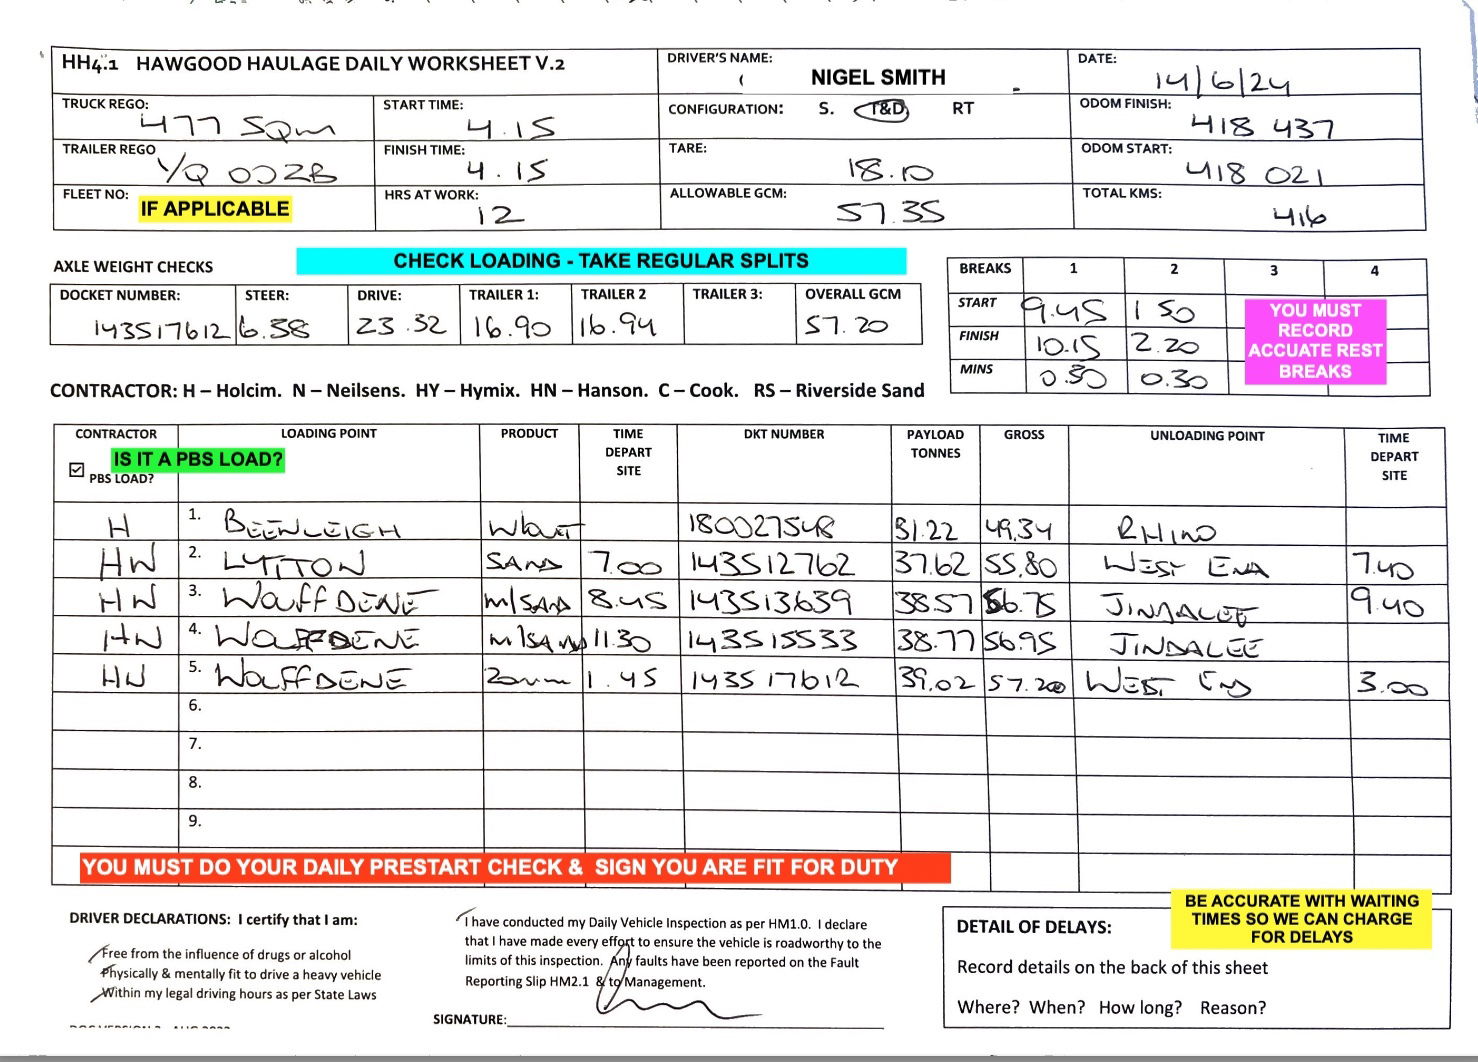 HH4.1 HAWGOOD HAULAGE DAILY WORKSHEET V.2
DRIVER'S NAME: NIGEL SMITH
DATE: 14/6/24
TRUCK REGO: 477 SQM
START TIME: 4.15
CONFIGURATION: S. T&D RT
ODOM FINISH: 418 437
TRAILER REGO YQ 002B
FINISH TIME: 4.15
TARE: 18.10
ODOM START: 418 021
FLEET NO: IF APPLICABLE
HRS AT WORK: 12
ALLOWABLE GCM: 57.35
TOTAL KMS: 416
CHECK LOADING - TAKE REGULAR SPLITS
AXLE WEIGHT CHECKS
DOCKET NUMBER: STEER: DRIVE: TRAILER 1: TRAILER 2 TRAILER 3: OVERALL GCM
143517612 6.38 23.32 16.90 16.94 57.20
BREAKS 1 2 3 4
START 9.45 1 50
FINISH 10.15 2.20
MINS 0.30 0.30
YOU MUST
RECORD
ACCUATE REST
BREAKS
CONTRACTOR: H – Holcim. N – Neilsens. HY – Hymix. HN – Hanson. C – Cook. RS – Riverside Sand
CONTRACTOR LOADING POINT PRODUCT TIME DEPART SITE DKT NUMBER PAYLOAD TONNES GROSS UNLOADING POINT TIME DEPART SITE
IS IT A PBS LOAD?
☑ PBS LOAD?
H 1. BEENLEIGH 180027548 31.22 49.34 RHINO
HN 2. LYTTON SAND 7.00 143512762 37.62 55.80 WEST END 7.40
HN 3. WOLFFDENE M/SAND 8.45 143513639 38.57 56.75 JINDALEE 9.40
HN 4. WOLFFDENE M/SAND 11.30 143515533 38.77 56.95 JINDALEE
HN 5. WOLFFDENE 20mm 1.45 143517612 39.02 57.20 WEST END 3.00
6.
7.
8.
9.
YOU MUST DO YOUR DAILY PRESTART CHECK & SIGN YOU ARE FIT FOR DUTY
DRIVER DECLARATIONS: I certify that I am:
Free from the influence of drugs or alcohol
Physically & mentally fit to drive a heavy vehicle
Within my legal driving hours as per State Laws
I have conducted my Daily Vehicle Inspection as per HM1.0. I declare
that I have made every effort to ensure the vehicle is roadworthy to the
limits of this inspection. Any faults have been reported on the Fault
Reporting Slip HM2.1 & to Management.
SIGNATURE:
BE ACCURATE WITH WAITING
TIMES SO WE CAN CHARGE
FOR DELAYS
DETAIL OF DELAYS:
Record details on the back of this sheet
Where? When? How long? Reason?